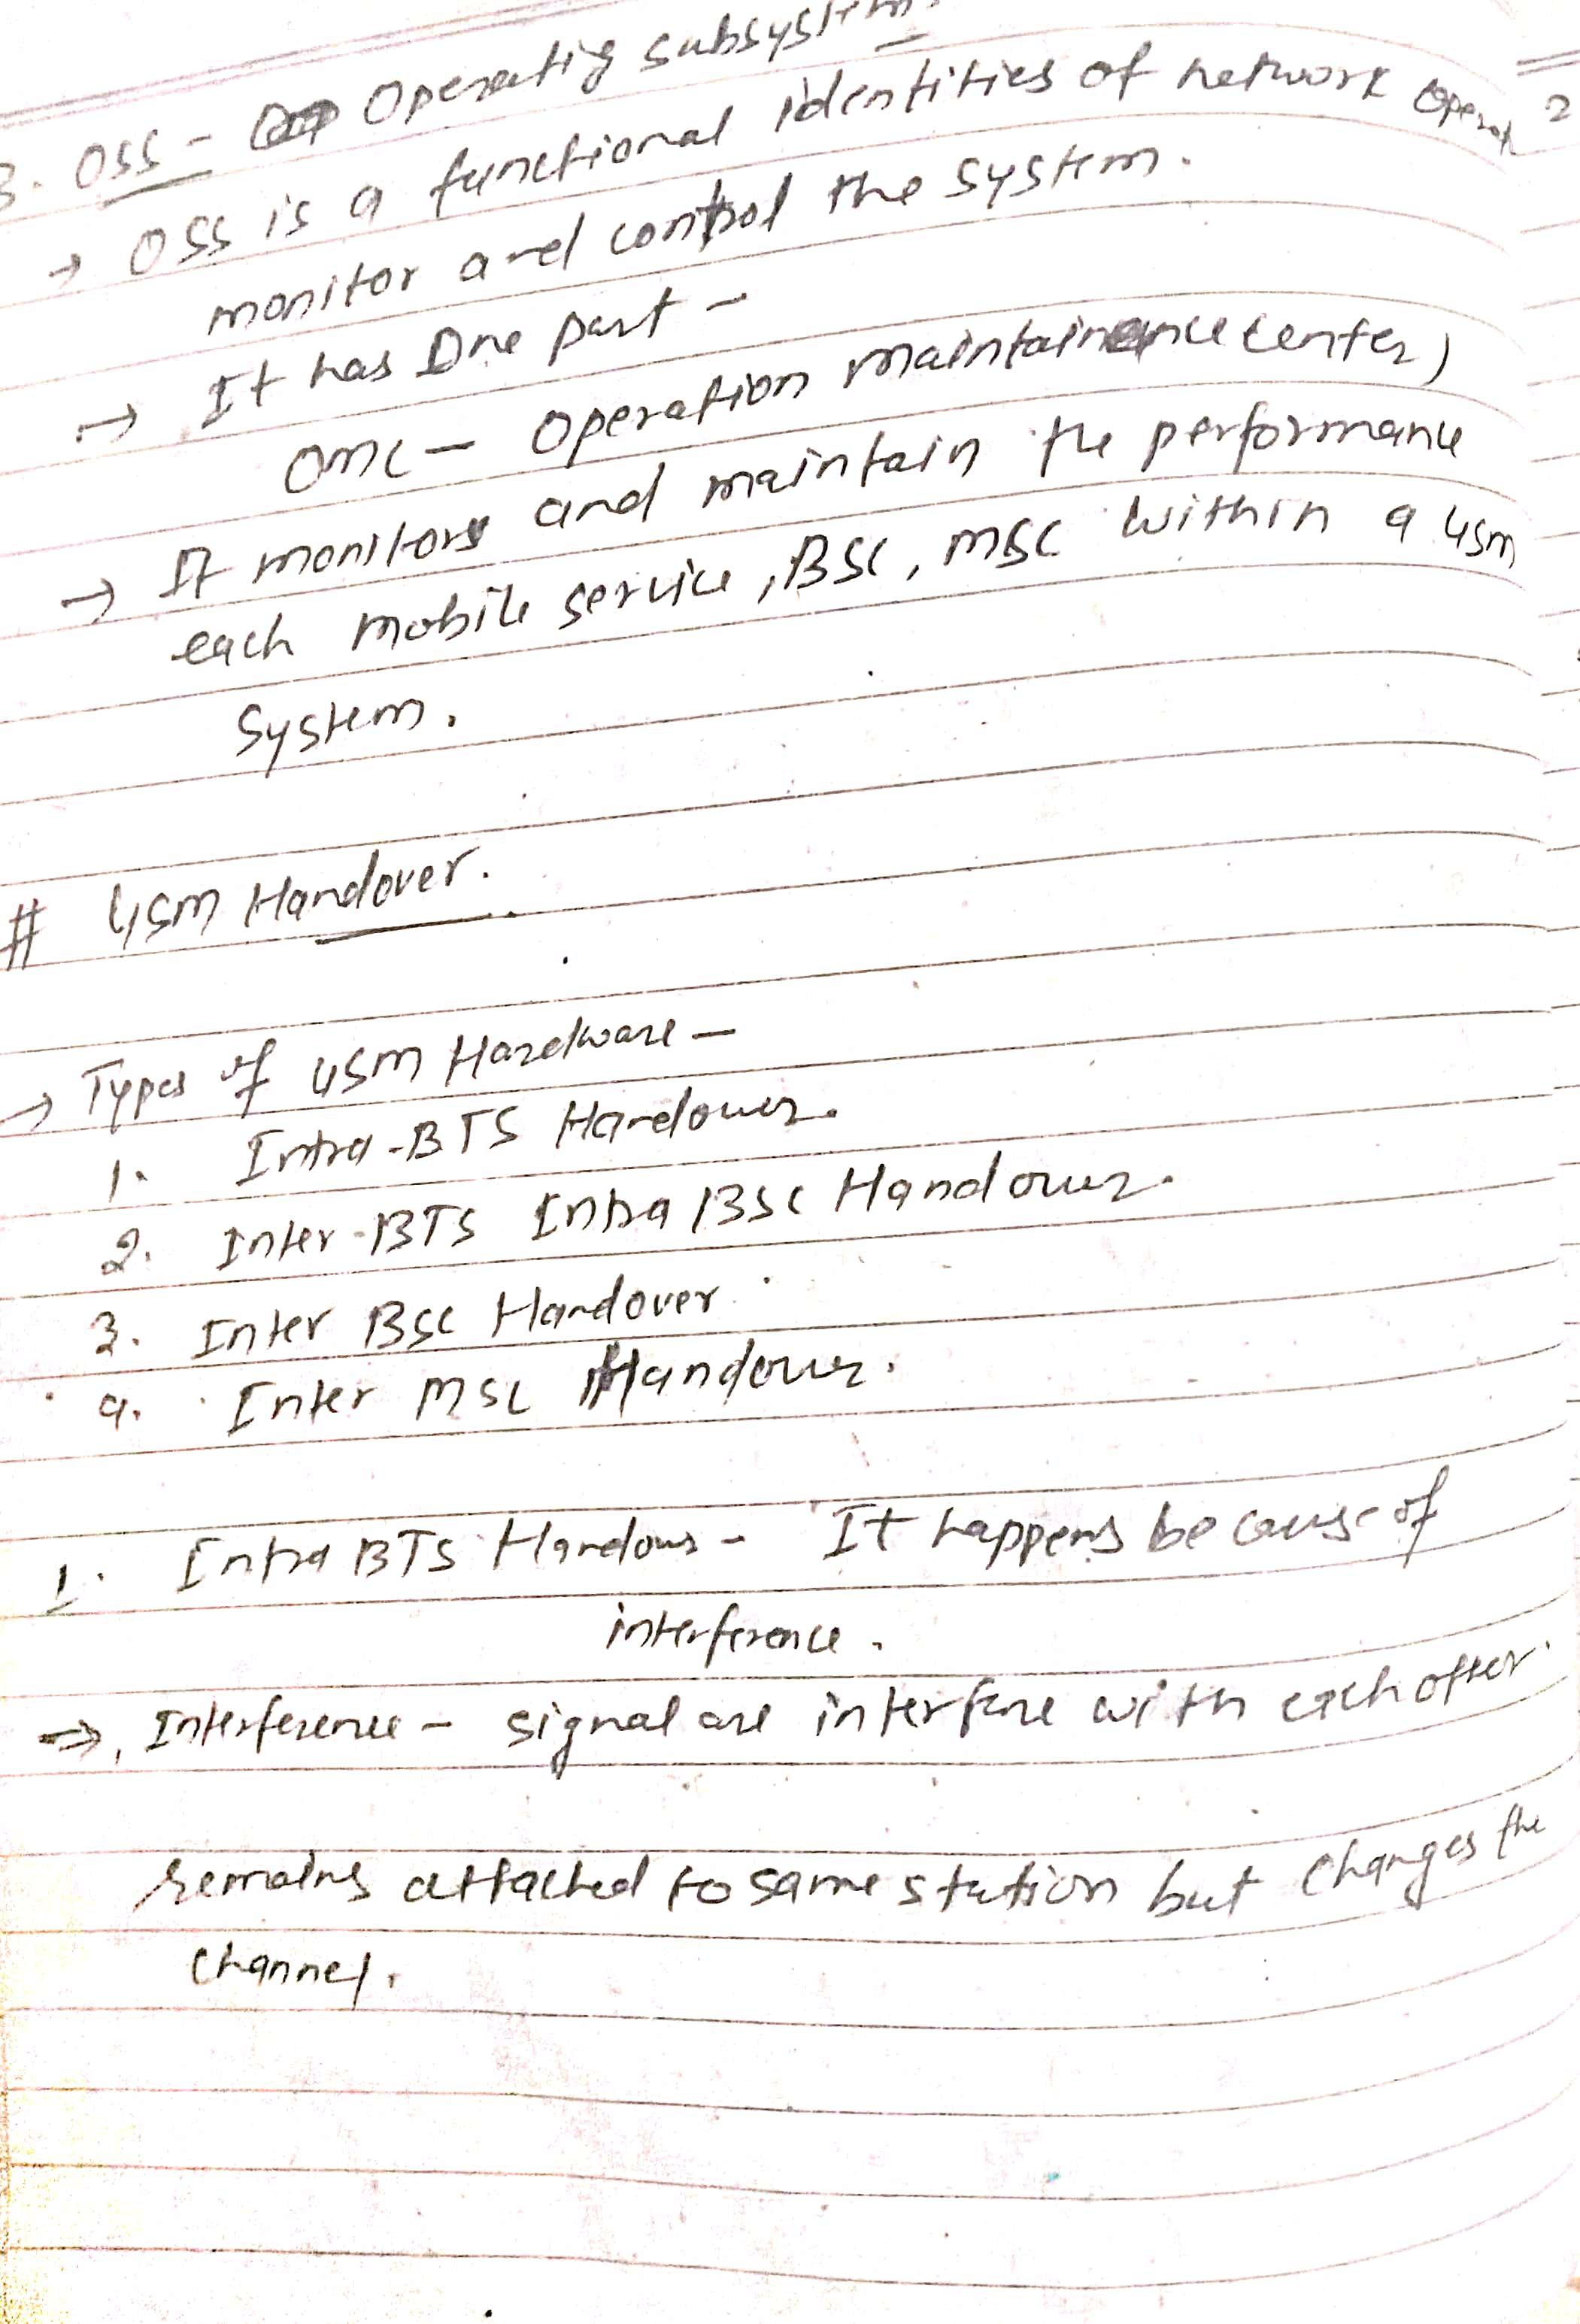 3. OSS - Operating subsystem.
→ OSS is a functional identities of network Operat
monitor and control the system.
→ It has One part -
OMC - Operation maintainance center)
→ It monitors and maintain the performance
each mobile service, BSC, MSC within a GSM
System.
# GSM Handover.
→ Types of GSM Hardware -
1. Intra-BTS Handover.
2. Inter-BTS Intra BSC Handover.
3. Inter BSC Handover.
4. Inter MSC Handover.
1. Intra BTS Handover - It happens because of
interference.
⇒ Interference - signal are interfere with each other.
remains attached to same station but changes the
channel.